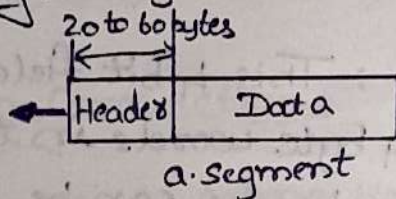 20 to 60 bytes
Header Data
a. segment